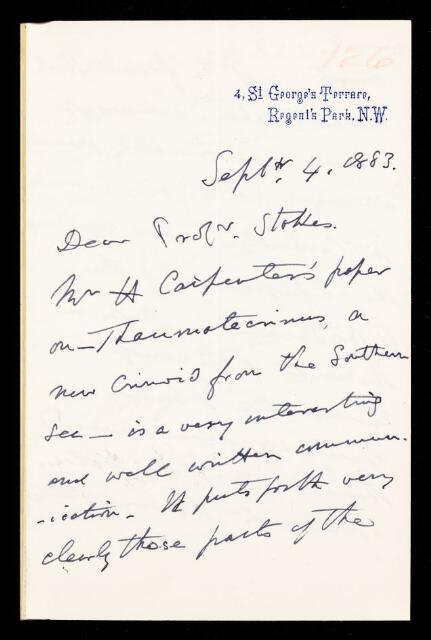 126
4, St George's Terrace,
Regent's Park, N.W.
Septr. 4. 1883.
Dear Profr. Stokes.
Mr H Carpenter's paper
on - Thaumatocrinus, a
new Crinoid from the Southern
Sea - is a very interesting
and well written commun-
-ication. It puts forth very
clearly those parts of the